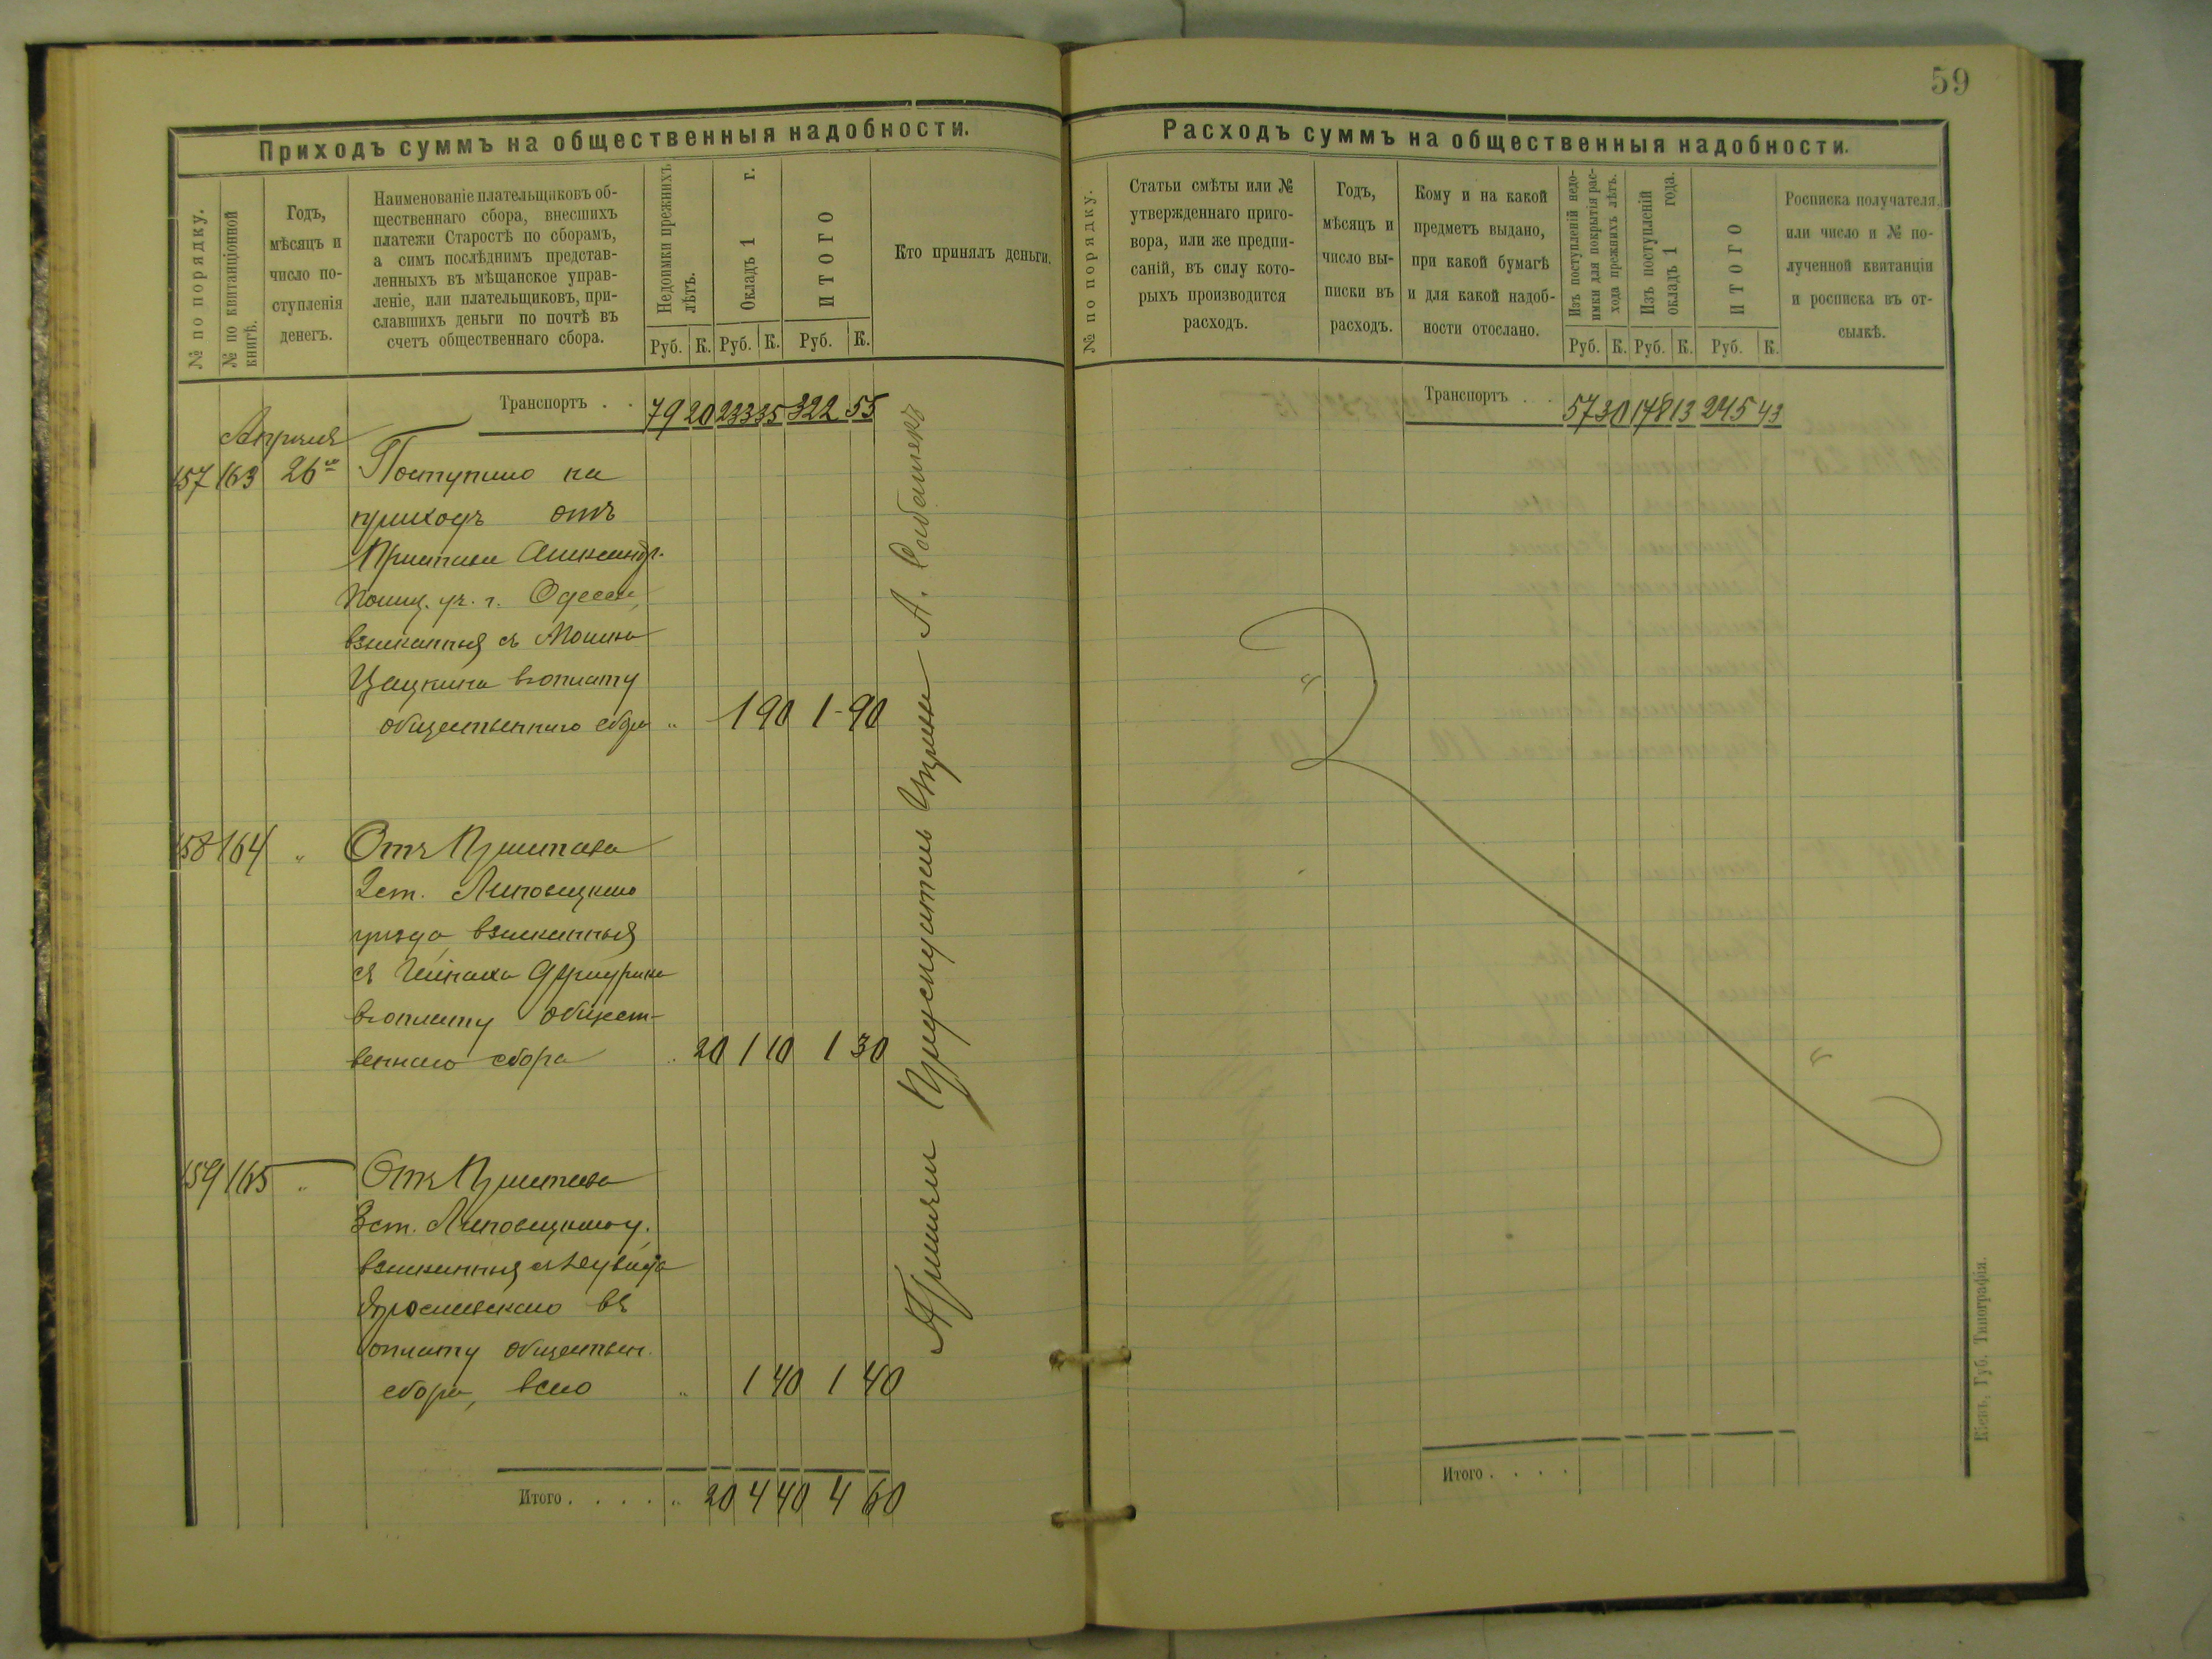 59
Приходъ суммъ на общественныя надобности.
№ по порядку.
№ по квитанціонной
книгѣ.
Годъ,
мѣсяцъ и
число по-
ступленія
денегъ.
Наименованіе плательщиковъ об-
щественнаго сбора, внесшихъ
платежи Старостѣ по сборамъ,
а симъ послѣднимъ представ-
ленныхъ въ мѣщанское управ-
леніе, или плательщиковъ, при-
славшихъ деньги по почтѣ въ
счетъ общественнаго сбора.
Недоимки прежнихъ
лѣтъ.
Окладъ 1 г.
ИТОГО
Руб. К. Руб. К. Руб. К.
Кто принялъ деньги.
Транспортъ . . 79 20 233 35 322 55
Апрѣля
157 163 26го Поступило на
приходъ отъ
Пристава Александр.
Полиц. уч. г. Одессы,
взысканныя съ
Цацкина въ оплату
общественнаго сбора „ 1 90 1-90
158 164 „ Отъ Пристава
2 ст. Липовецкаго
уѣзда, взысканныя
съ
въ оплату общест-
веннаго сбора „ 20 1 10 1 30
159 165 „ Отъ Пристава
3 ст. Липовецкаго у.
взысканныя съ
Ярославскаго въ
оплату обществен.
сбора, всего „ 1 40 1 40
Итого . . . . „ 20 4 40 4 60
Приняли Предсѣдатель А.
Расходъ суммъ на общественныя надобности.
№ по порядку.
Статьи смѣты или №
утвержденнаго приго-
вора, или же предпи-
саній, въ силу кото-
рыхъ производится
расходъ.
Годъ,
мѣсяцъ и
число вы-
писки въ
расходъ.
Кому и на какой
предметъ выдано,
при какой бумагѣ
и для какой надоб-
ности отослано.
Изъ поступленій недо-
имки для покрытія рас-
хода прежнихъ лѣтъ.
Изъ поступленій
окладъ 1 года.
ИТОГО
Руб. К. Руб. К. Руб. К.
Росписка получателя,
или число и № по-
лученной квитанціи
и росписка въ от-
сылкѣ.
Транспортъ . . 57 30 178 13 245 43
Итого . . . .
Кіевъ. Губ. Типографія.